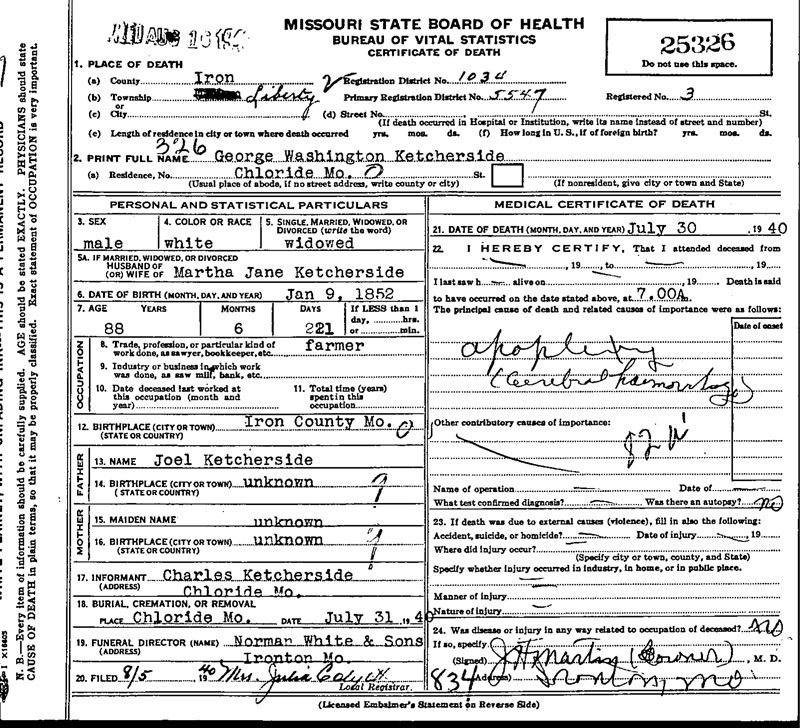 MISSOURI STATE BOARD OF HEALTH
BUREAU OF VITAL STATISTICS
CERTIFICATE OF DEATH
25326
Do not use this space.
1. PLACE OF DEATH
(a) County Iron Registration District No. 1034
(b) Township Liberty Primary Registration District No. 5547 Registered No. 3
or
(c) City (d) Street No. St.
(If death occurred in Hospital or Institution, write its name instead of street and number)
(e) Length of residence in city or town where death occurred yrs. mos. ds. (f) How long in U. S., if of foreign birth? yrs. mos. ds.
326
2. PRINT FULL NAME George Washington Ketcherside
(a) Residence, No. Chloride Mo. St.
(Usual place of abode, if no street address, write county or city) (If nonresident, give city or town and State)
PERSONAL AND STATISTICAL PARTICULARS
3. SEX 4. COLOR OR RACE 5. SINGLE, MARRIED, WIDOWED, OR
DIVORCED (write the word)
male white widowed
5A. IF MARRIED, WIDOWED, OR DIVORCED
HUSBAND OF
(OR) WIFE OF Martha Jane Ketcherside
6. DATE OF BIRTH (MONTH, DAY, AND YEAR) Jan 9, 1852
7. AGE YEARS MONTHS DAYS If LESS than 1
day, hrs.
88 6 221 or min.
OCCUPATION
8. Trade, profession, or particular kind of
work done, as sawyer, bookkeeper, etc. farmer
9. Industry or business in which work
was done, as saw mill, bank, etc.
10. Date deceased last worked at
this occupation (month and
year) 11. Total time (years)
spent in this
occupation
12. BIRTHPLACE (CITY OR TOWN) Iron County Mo.
(STATE OR COUNTRY)
FATHER
13. NAME Joel Ketcherside
14. BIRTHPLACE (CITY OR TOWN) unknown
(STATE OR COUNTRY)
MOTHER
15. MAIDEN NAME unknown
16. BIRTHPLACE (CITY OR TOWN) unknown
(STATE OR COUNTRY)
17. INFORMANT Charles Ketcherside
(ADDRESS) Chloride Mo.
18. BURIAL, CREMATION, OR REMOVAL
PLACE Chloride Mo. DATE July 31 1940
19. FUNERAL DIRECTOR (NAME) Norman White & Sons
(ADDRESS) Ironton Mo.
20. FILED 8/5 1940 Mrs. Julia
Local Registrar.
MEDICAL CERTIFICATE OF DEATH
21. DATE OF DEATH (MONTH, DAY, AND YEAR) July 30 1940
22. I HEREBY CERTIFY, That I attended deceased from
, 19 , to , 19
I last saw h alive on , 19 Death is said
to have occurred on the date stated above, at 7.00A.
The principal cause of death and related causes of importance were as follows:
Date of onset
apoplexy
(Cerebral haemorrhage)
Other contributory causes of importance:
Name of operation Date of
What test confirmed diagnosis? Was there an autopsy? no
23. If death was due to external causes (violence), fill in also the following:
Accident, suicide, or homicide? Date of injury , 19
Where did injury occur?
(Specify city or town, county, and State)
Specify whether injury occurred in industry, in home, or in public place.
Manner of injury
Nature of injury
24. Was disease or injury in any way related to occupation of deceased? no
If so, specify
(Signed) Martin (Coroner) , M. D.
834 (Address) Ironton, Mo
(Licensed Embalmer's Statement on Reverse Side)
N. B.—Every item of information should be carefully supplied. AGE should be stated EXACTLY. PHYSICIANS should state
CAUSE OF DEATH in plain terms, so that it may be properly classified. Exact statement of OCCUPATION is very important.